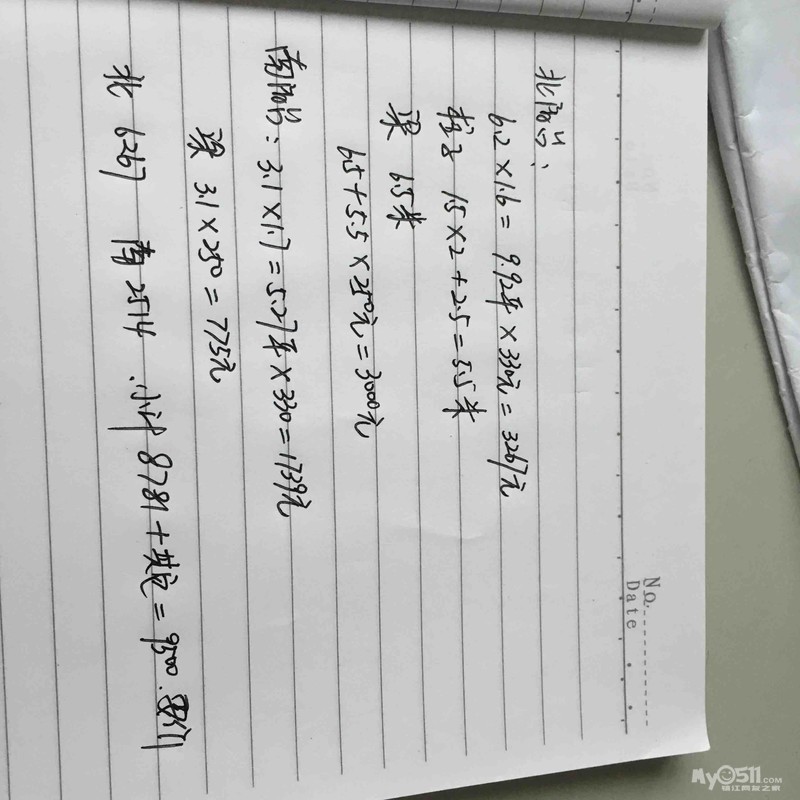 No.
Date
北阳台:
6.2×1.6=9.92平×330元=3267元
柱子 1.5×2+2.5=5.5米
梁 6.5米
6.5+5.5×250元=3000元
南阳台:3.1×1.7=5.27平×330=1739元
梁 3.1×250=775元
北 6267 南 2514 小计 8781+其它=9500.
My0511.COM
镇江网友之家